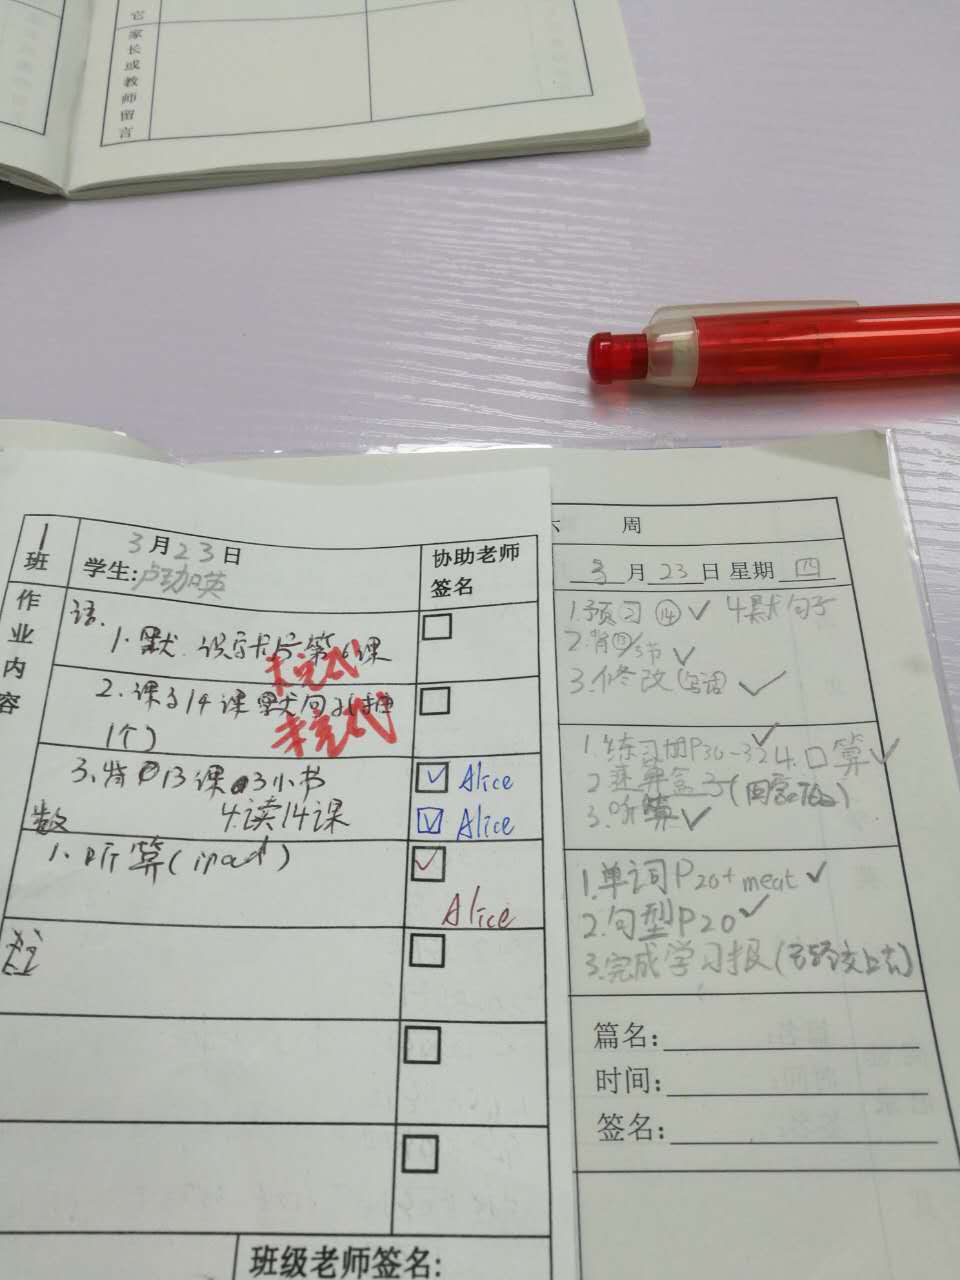 它
家长或教师留言
1班
3月23日
学生:卢加英
协助老师签名
作业内容
语.
1.默.识字卡片第6课
未完成
2.课3 14课默句子(抽1个)
未完成
3.背P13课 3小书
Alice
4.读14课
Alice
数
1.听算(ipad)
Alice
班级老师签名:
六 周
3月23日 星期四
1.预习⑭ 4.默句子
3.修改(写话)
1.练习册P30-32 4.口算
3.听算
1.单词P20+meat
2.句型P20
3.完成学习报
篇名:
时间:
签名: